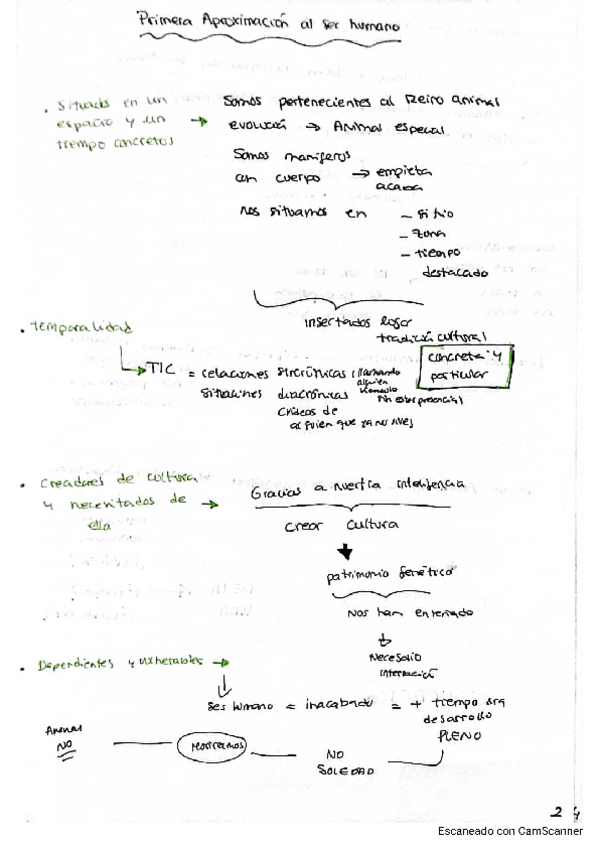 Primera Aproximación al ser humano
. Situado en un
espacio y un
tiempo concretos →
Somos pertenecientes al Reino animal
evolución → Animal especial
Somos mamíferos
con cuerpo → empieza
acaba
Nos situamos en – sitio
– zona
– tiempo
destacado
insertados lugar
tradición cultural
concreta y
particular
. Temporalidad
TIC = relaciones sincrónicas (llamando
alguien
situaciones diacrónicas
sin estar presencial)
(videos de
alguien que ya no vive)
. Creadores de cultura
y necesitados de →
ella
Gracias a nuestra inteligencia
crear cultura
patrimonio genético
Nos han enseñado
Necesario
interacción
. Dependientes y vulnerables →
Ser humano = inacabado = + tiempo
desarrollo
PLENO
Animal
NO
NO
SOLEDAD
2 4
Escaneado con CamScanner